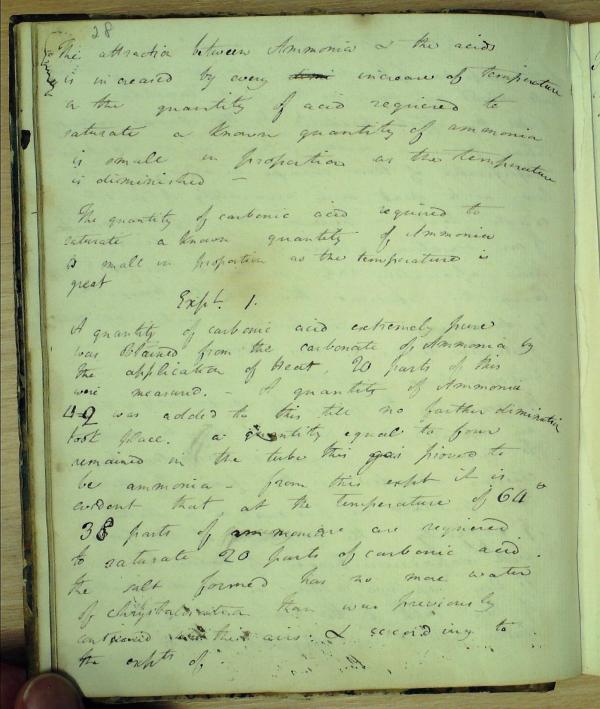 28
The attraction between Ammonia & the acids
is increased by every increase of temperature
or the quantity of acid required to
saturate a known quantity of ammonia
is small in proportion as the temperature
is diminished —
The quantity of carbonic acid required to
saturate a known quantity of Ammonia
is small in proportion as the temperature is
great
Expt. 1.
A quantity of carbonic acid extremely pure
was obtained from the carbonate of Ammonia by
the application of Heat, 20 parts of this
were measured. – A quantity of Ammonia
42 was added to this till no farther diminution
took place. a quantity equal to four
remained in the tube this gas proved to
be ammonia – from this expt it is
evident that at the temperature of 60°
38 parts of ammoniac are required
to saturate 20 parts of carbonic acid.
the salt formed has no more water
of than was previously
contained in this airs. & according to
the expts of